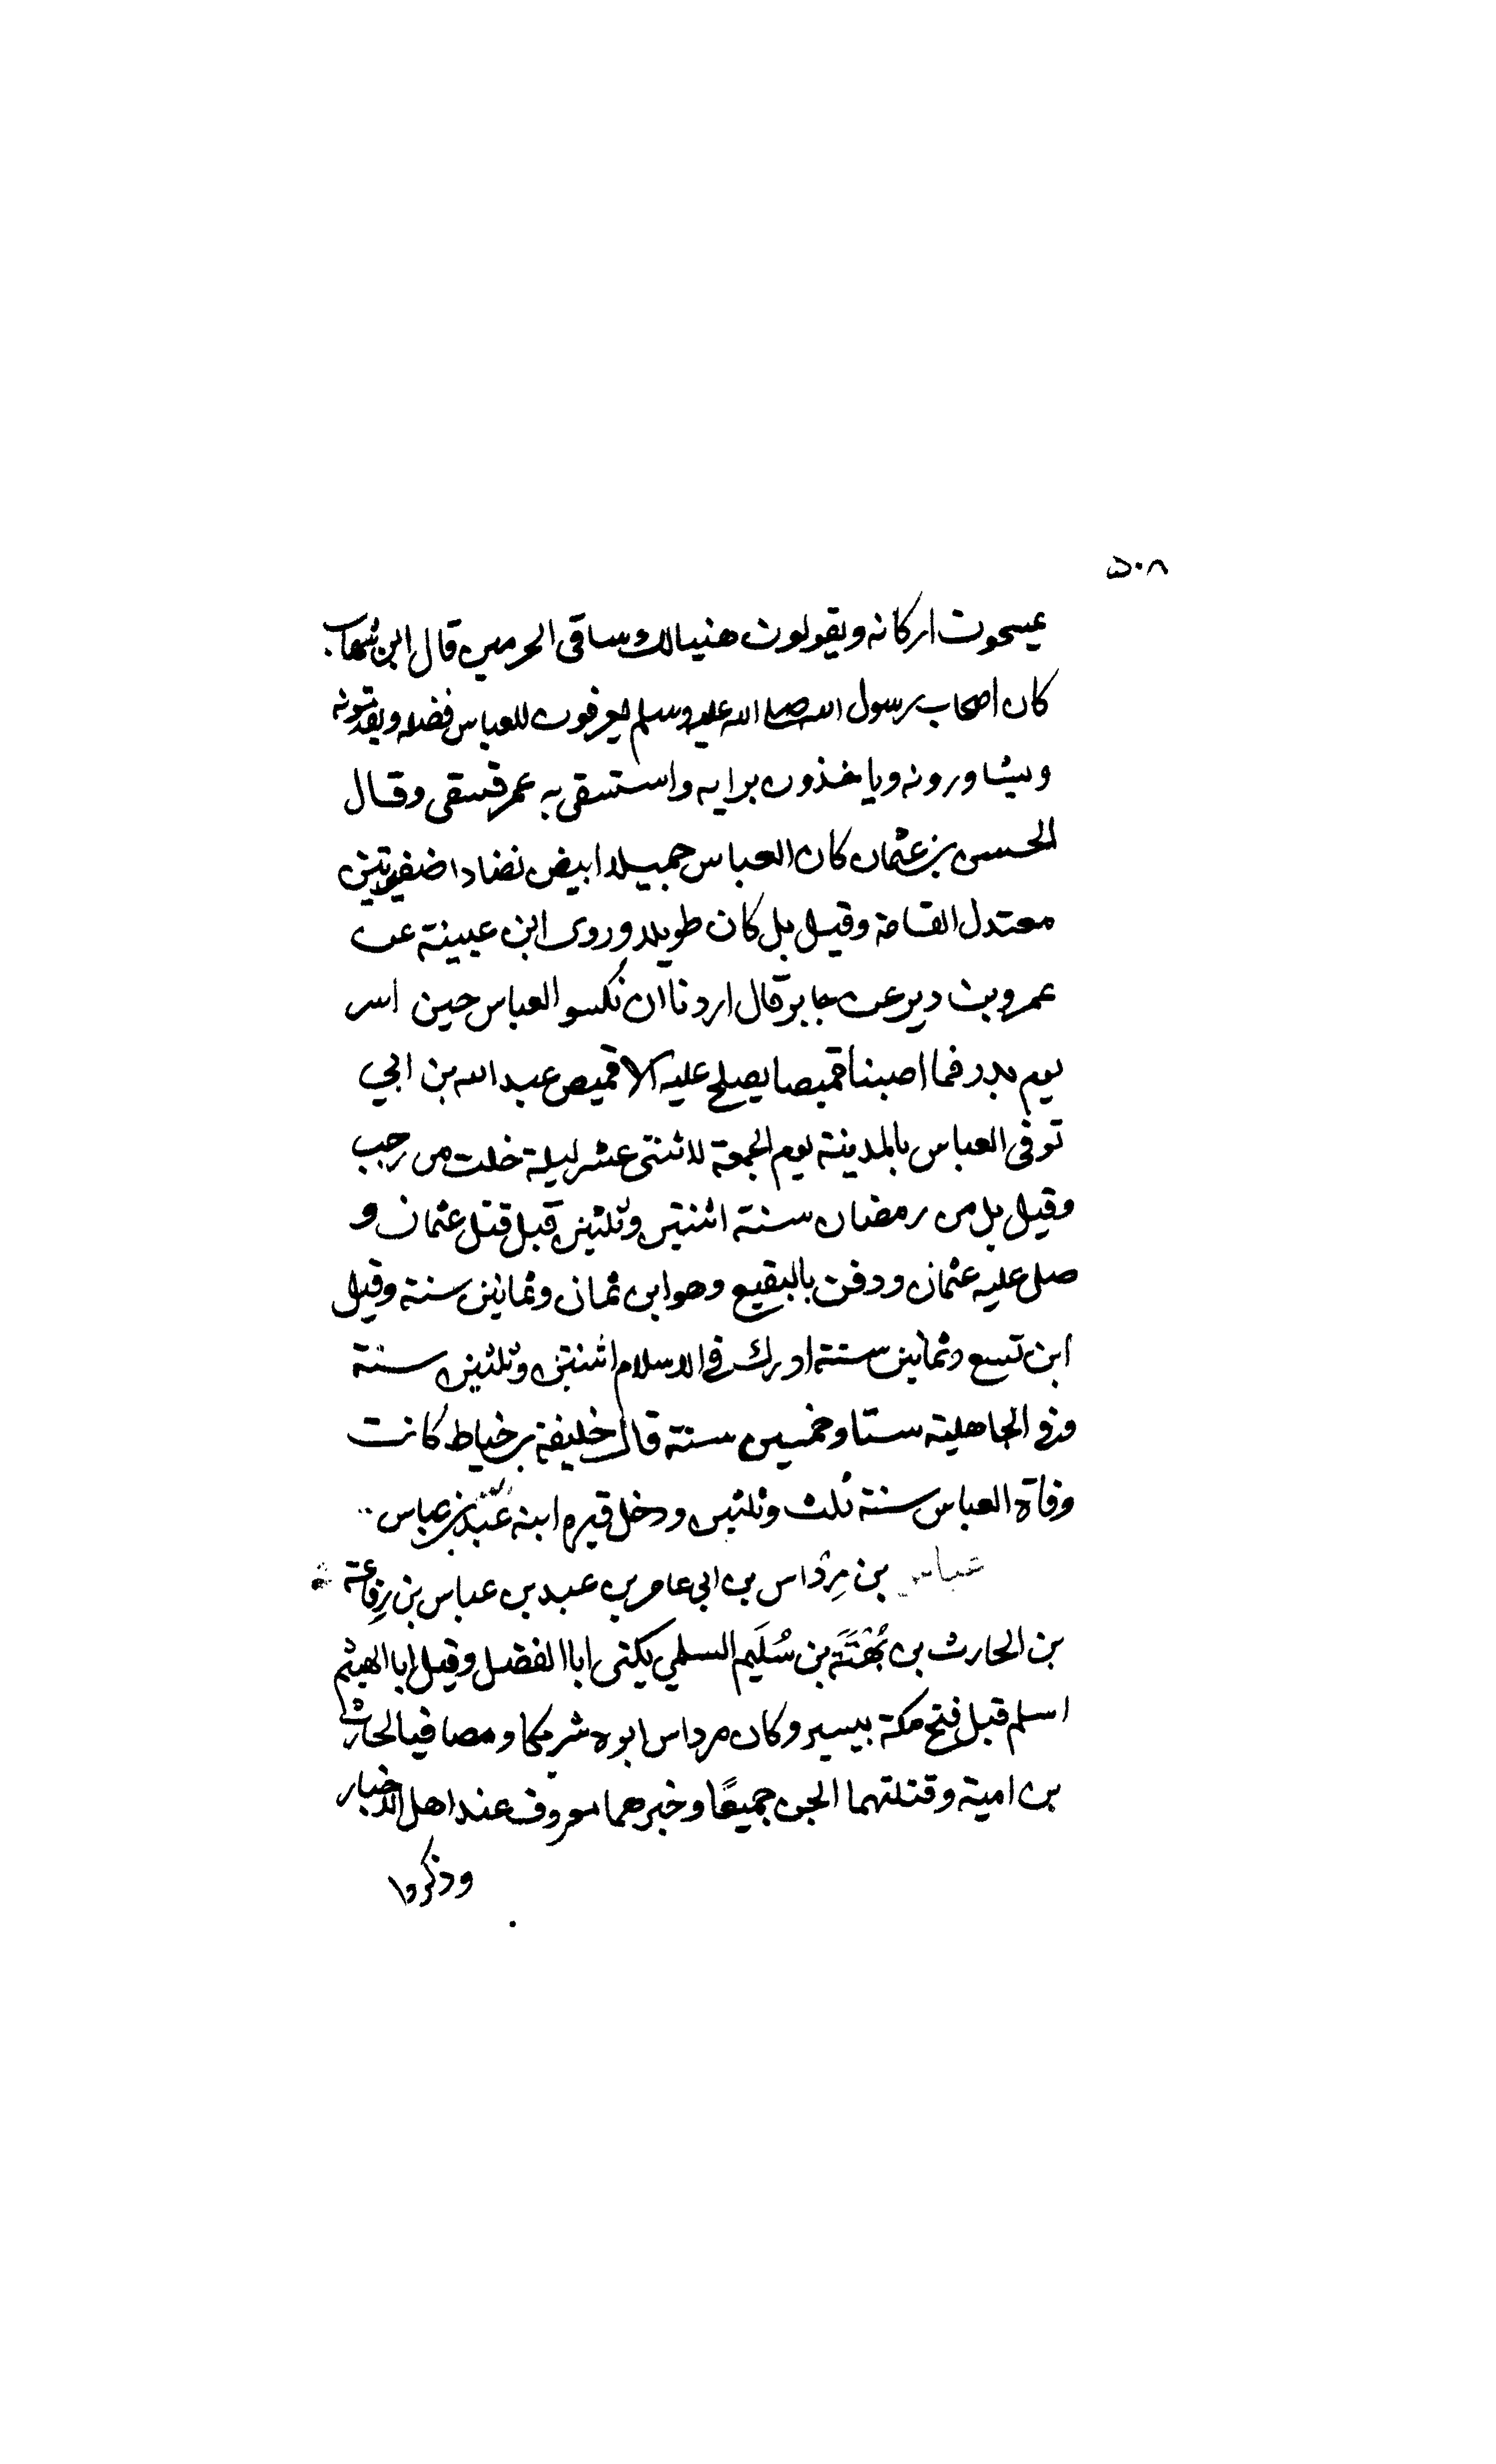 ٥٠٨
يمسحون اركانه ويقولون هنيا لك ساقى الحرمين قال ابن شهاب
كان اصحاب رسول الله صلى الله عليه وسلم يعرفون للعباس فضله ويقدمونه
ويشاورونه وياخذون برايه واستسقى به عمر فسقى وقال
الحسن بن عثمان كان العباس جميلا ابيض نضادا ضفيرتين
معتدل القامة وقيل بل كان طويلا وروى ابن عيينة عن
عمرو بن دير عن جابر قال اردنا ان نكسو العباس حين اسر
يوم بدر فما اصبنا قميصا يصلح عليه الا قميص عبد الله بن ابي
توفى العباس بالمدينة يوم الجمعة لاثنتى عشر ليلة خلت من رجب
وقيل بل من رمضان سنة اثنتين وثلثين قبل قتل عثمان و
صلى عليه عثمان ودفن بالبقيع وهو ابن ثمان وثمانين سنة وقيل
ابن تسع وثمانين سنة ادرك فى الاسلام اثنتين وثلثين سنة
وفى الجاهلية ستا وخمسين سنة قال خليفة بن خياط كانت
وفاة العباس سنة ثلث وثلثين ودخل قبره ابنه عبد الله بن عباس
عباس بن مِرْداس بن ابى عامر بن عبد بن عباس بن رِفاعة
بن الحارث بن بُهْثَةَ بن سُلَيم السلمي يكنى ابا الفضل وقيل ابا الهيثم
اسلم قبل فتح مكة بيسير وكان مرداس ابوه شريكا ومصافيا لحارث
بن امية وقتلتهما الجن جميعًا وخبرهما معروف عند اهل الاخبار
وذكروا